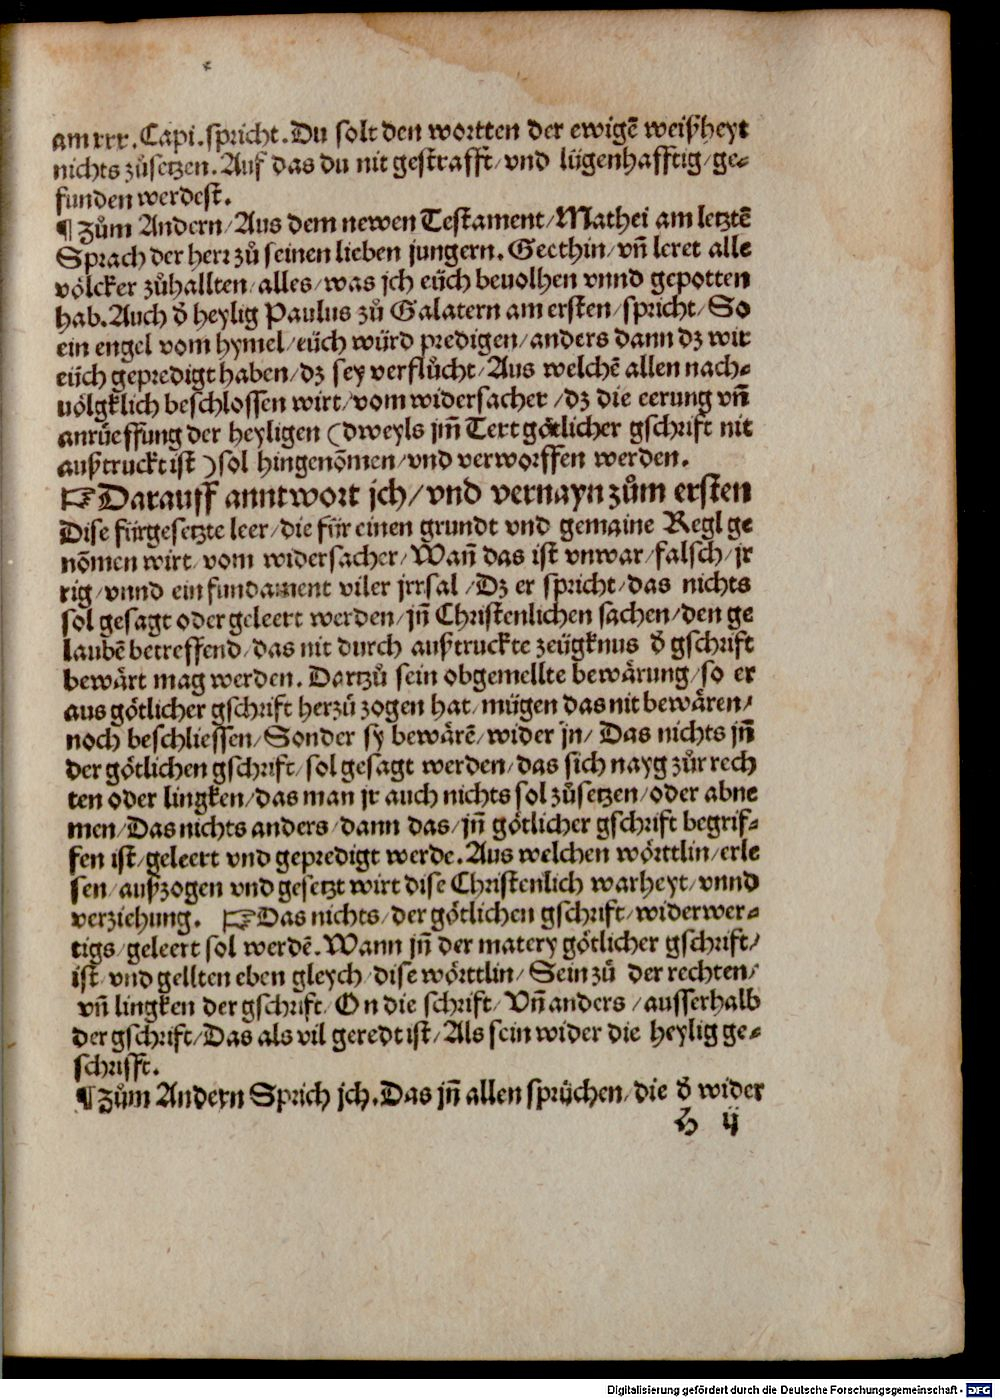 am xxx. Capi. spricht. Du solt den wortten der ewigē weißheyt
nichts zůsetzen. Auf das du nit gestrafft/ vnd lügenhafftig/ ge-
funden werdest.
¶ Zům Andern/ Aus dem newen Testament/ Mathei am letztē
Sprach der herr zů seinen lieben jungern. Geethin/ vn̄ leret alle
völcker zůhallten/ alles/ was jch eüch beuolhen vnnd gepotten
hab. Auch d̕ heylig Paulus zů Galatern am ersten/ spricht/ So
ein engel vom hymel/ eüch würd predigen/ anders dann dz wir
eüch gepredigt haben/ dz sey verflůcht/ Aus welchē allen nach-
uölgklich beschlossen wirt/ vom widersacher/ dz die eerung vn̄
anrüeffung der heyligen (dweyls jm̄ Text götlicher gschrift nit
außtruckt ist) sol hingenōmen/ vnd verworffen werden.
☞ Darauff anntwort jch/ vnd vernayn zům ersten
Dise fürgesetzte leer/ die für einen grundt vnd gemaine Regl ge
nōmen wirt/ vom widersacher/ Wan̄ das ist vnwar/ falsch/ jr
rig/ vnnd ein fundament viler jrrsal/ Dz er spricht/ das nichts
sol gesagt oder geleert werden/ jn̄ Christenlichen sachen/ den ge
laubē betreffend/ das nit durch außtruckte zeügknus d̕ gschrift
bewärt mag werden. Dartzů sein obgemellte bewärung/ so er
aus götlicher gschrift herzů zogen hat/ mügen das nit bewären/
noch beschliessen/ Sonder sy bewärē/ wider jn/ Das nichts jn̄
der götlichen gschrift/ sol gesagt werden/ das sich nayg zůr rech
ten oder lingken/ das man jr auch nichts sol zůsetzen/ oder abne
men/ Das nichts anders/ dann das/ jn̄ götlicher gschrift begrif-
fen ist/ geleert vnd gepredigt werde. Aus welchen wörttlin/ erle
sen/ außzogen vnd gesetzt wirt dise Christenlich warheyt/ vnnd
verziehung. ☞ Das nichts/ der götlichen gschrift/ widerwer-
tigs/ geleert sol werdē. Wann jn̄ der matery götlicher gschrift/
ist/ vnd gellten eben gleych/ dise wörttlin/ Sein zů der rechten/
vn̄ lingken der gschrift/ On die schrift/ Vn̄ anders/ ausserhalb
der gschrift/ Das als vil geredt ist/ Als sein wider die heylig ge-
schrifft.
¶ Zům Andern Sprich jch. Das jn̄ allen sprüchen/ die d̕ wider
H ij
Digitalisierung gefördert durch die Deutsche Forschungsgemeinschaft - DFG